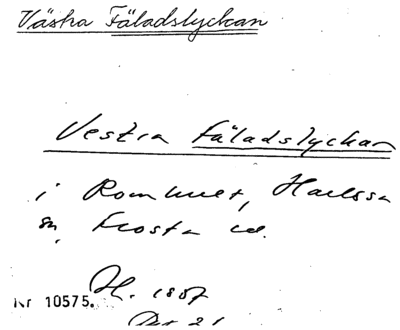 Västra Fäladslyckan
Vestra Fäladslyckan
i Rommuet, Harlssa
sn, Frosta hd.
H. 1887
Nr 10575.